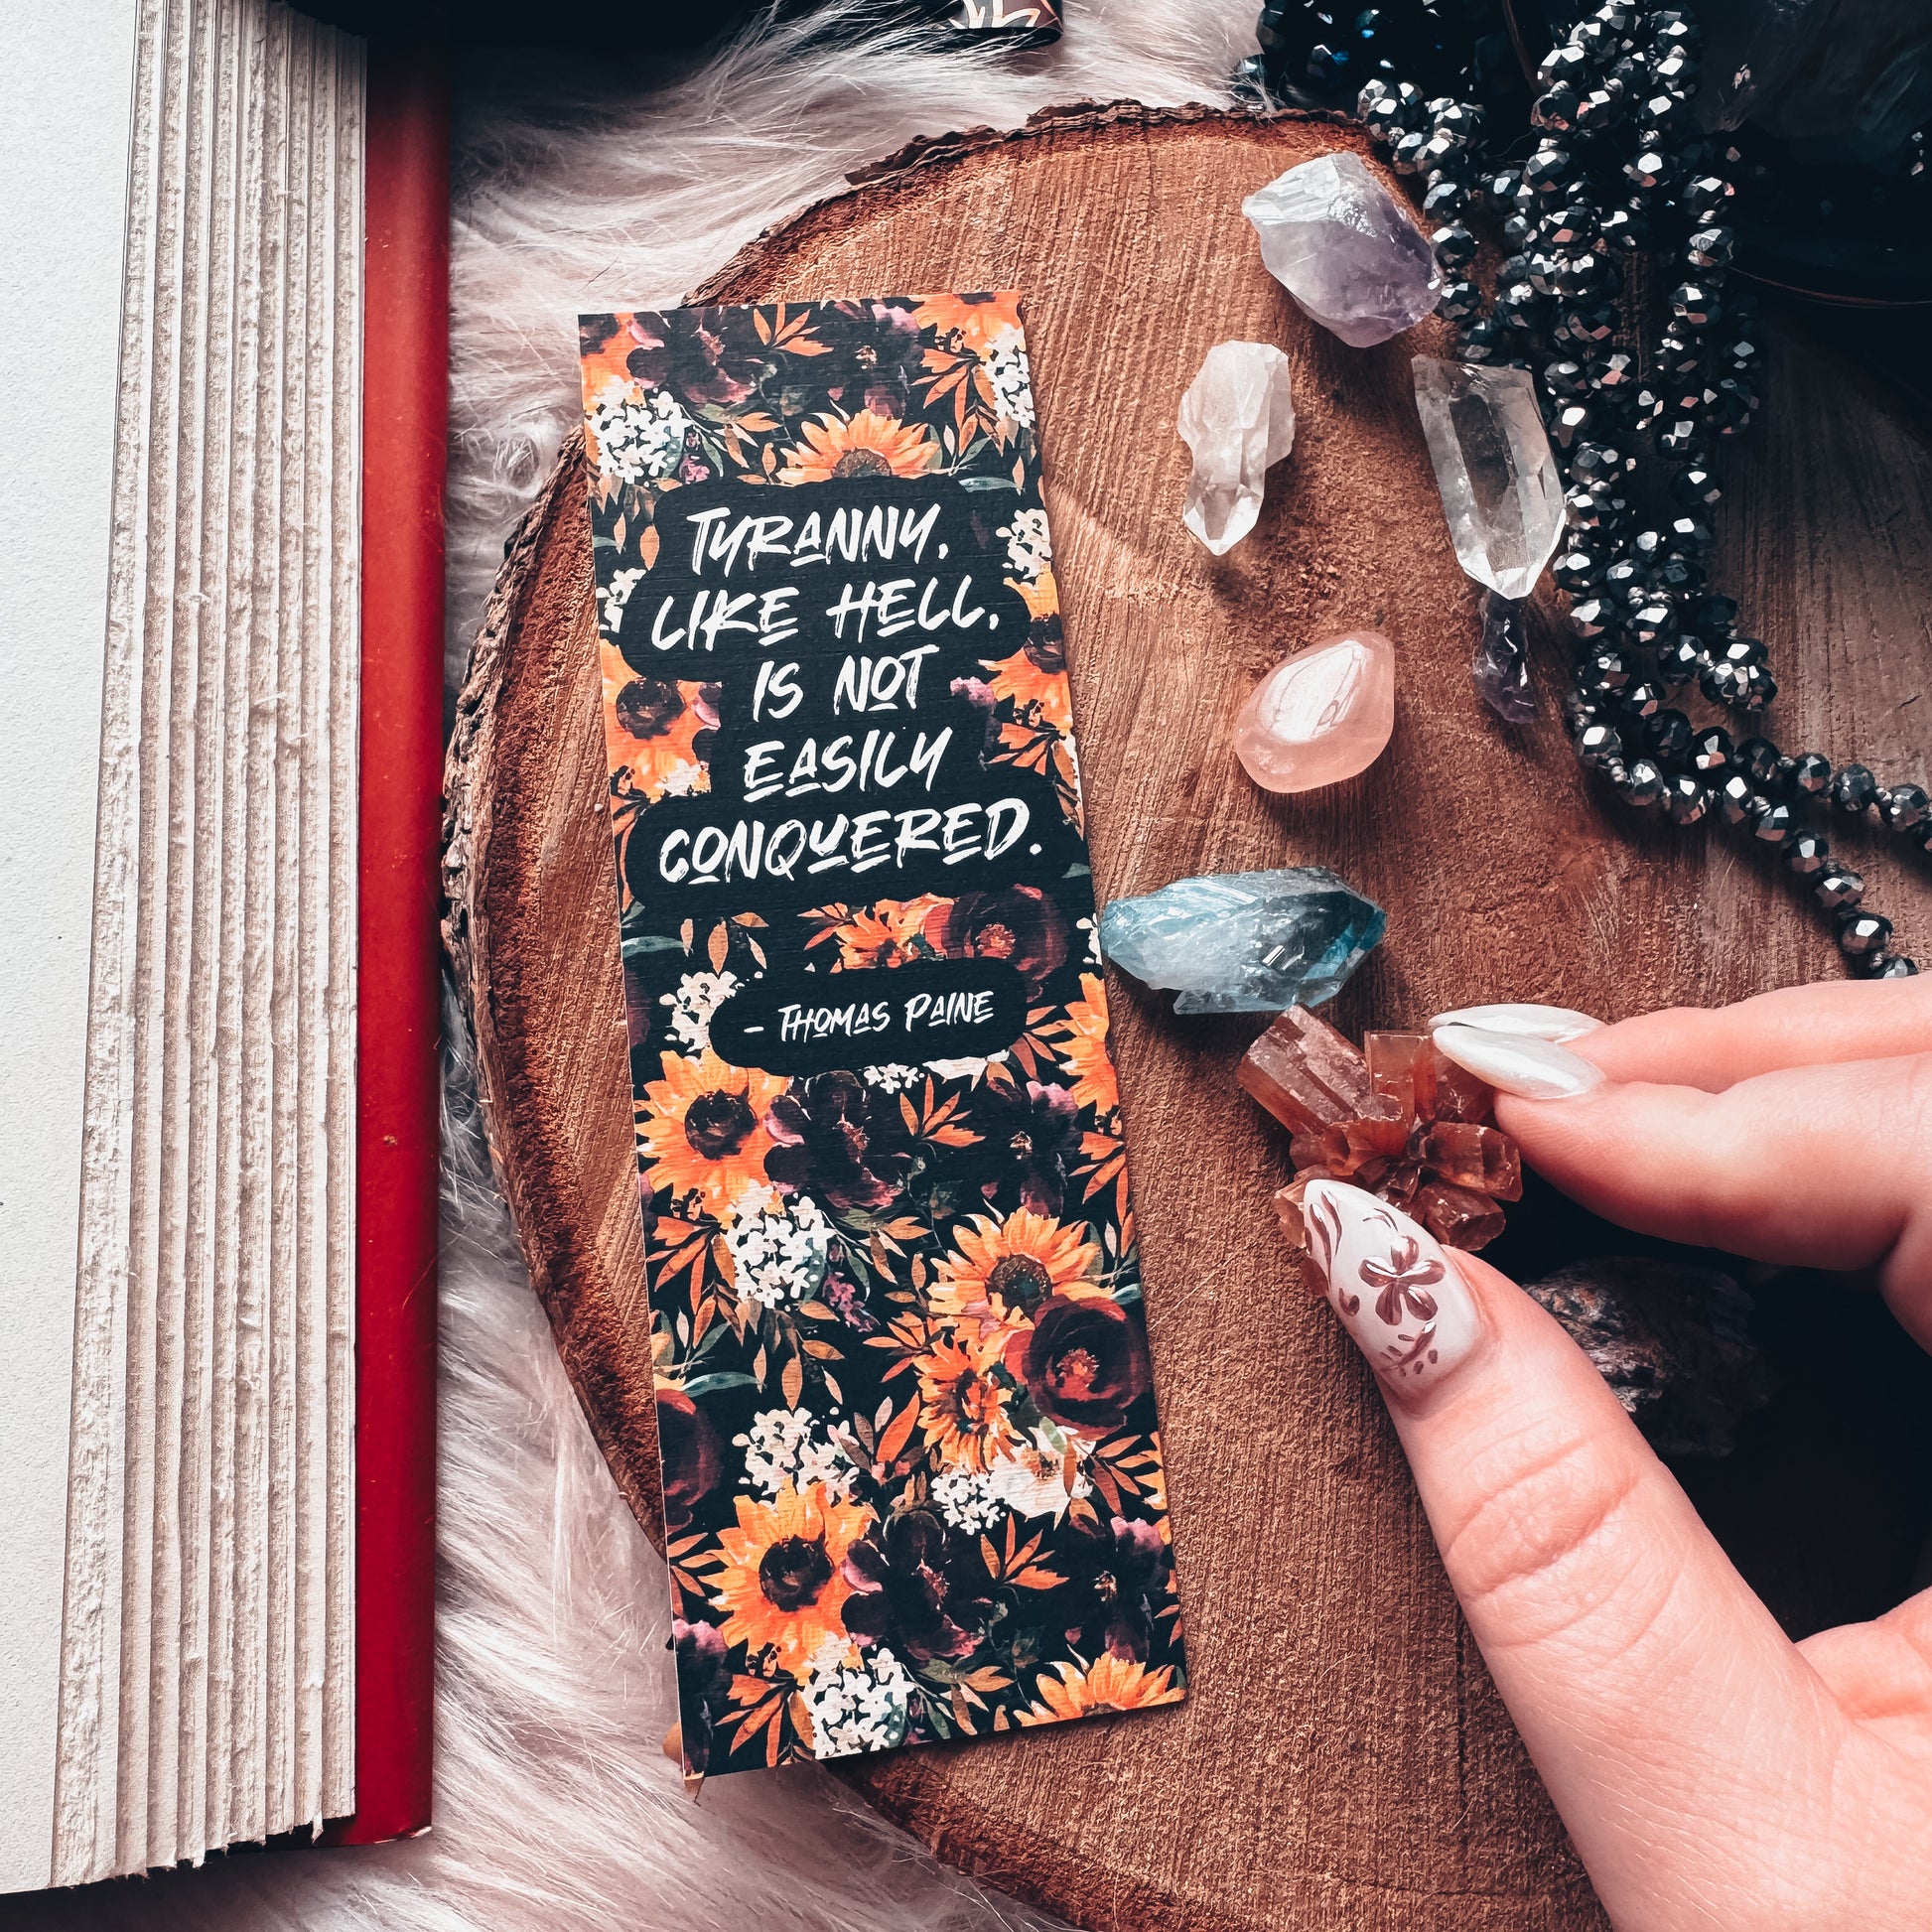 TYRANNY,
LIKE HELL,
IS NOT
EASILY
CONQUERED.
- THOMAS PAINE